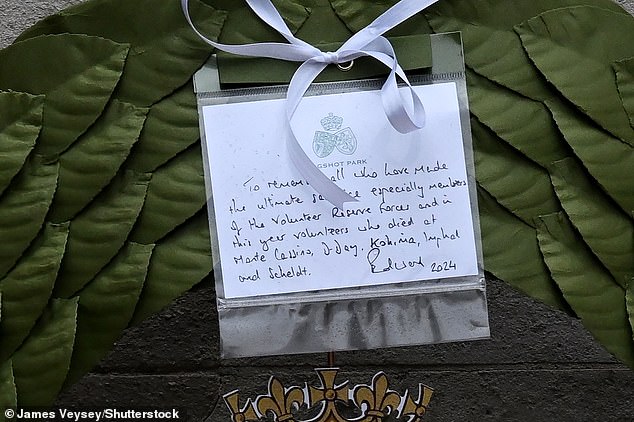 GSHOT PARK
To remem all who have made
the ultimate s ce especially members
of the Volunteer Reserve Forces and in
this year volunteers who died at
Monte Cassino, D-Day, Kohima, Imphal
and Scheldt. Edward 2024
© James Veysey/Shutterstock